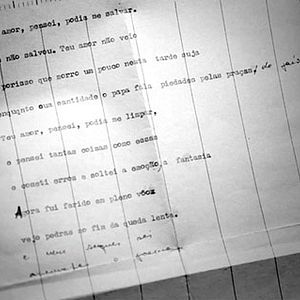 amor, pensei, podia me salvar.
não salvou. Teu amor não veio
porisso que morro um pouco nesta tarde suja
enquanto sua santidade o papa fala piedades pelas praças, do
Teu amor, pensei, podia me limpar,
e pensei tantas coisas como essas
e cometi erros e soltei a emoção, a fantasia
Agora fui ferido em pleno vôo
vejo pedras no fim da queda lenta.
e meu sangue
o